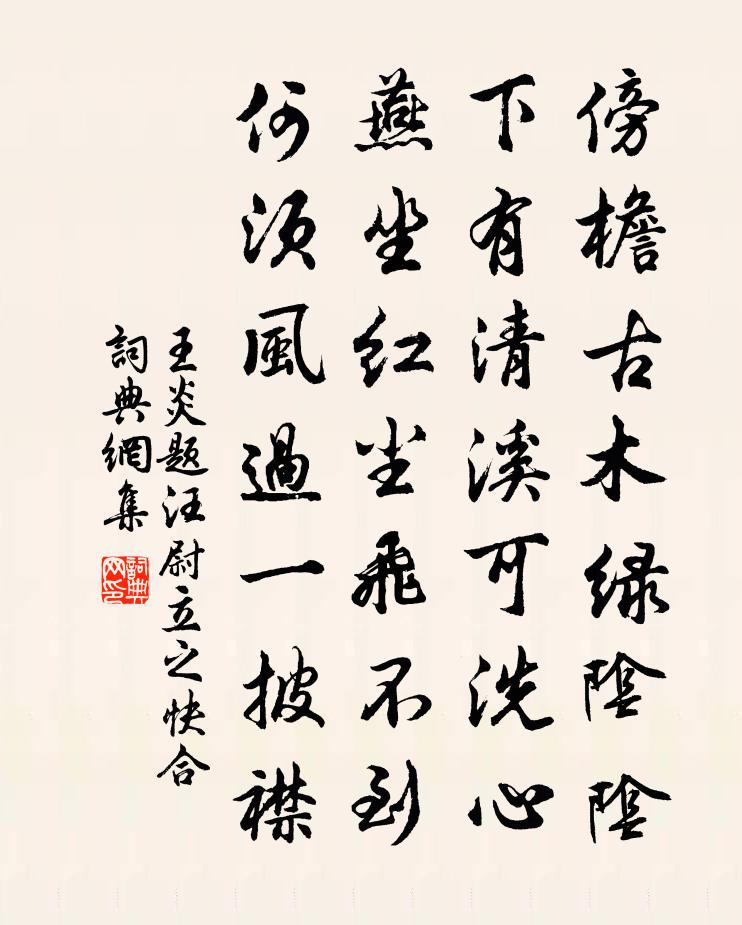 傍檐古木緑陰陰
下有清溪可洗心
燕坐紅尘飛不到
何須風過一披襟
王炎题汪尉立之快合
詞典網集
詞典
网印